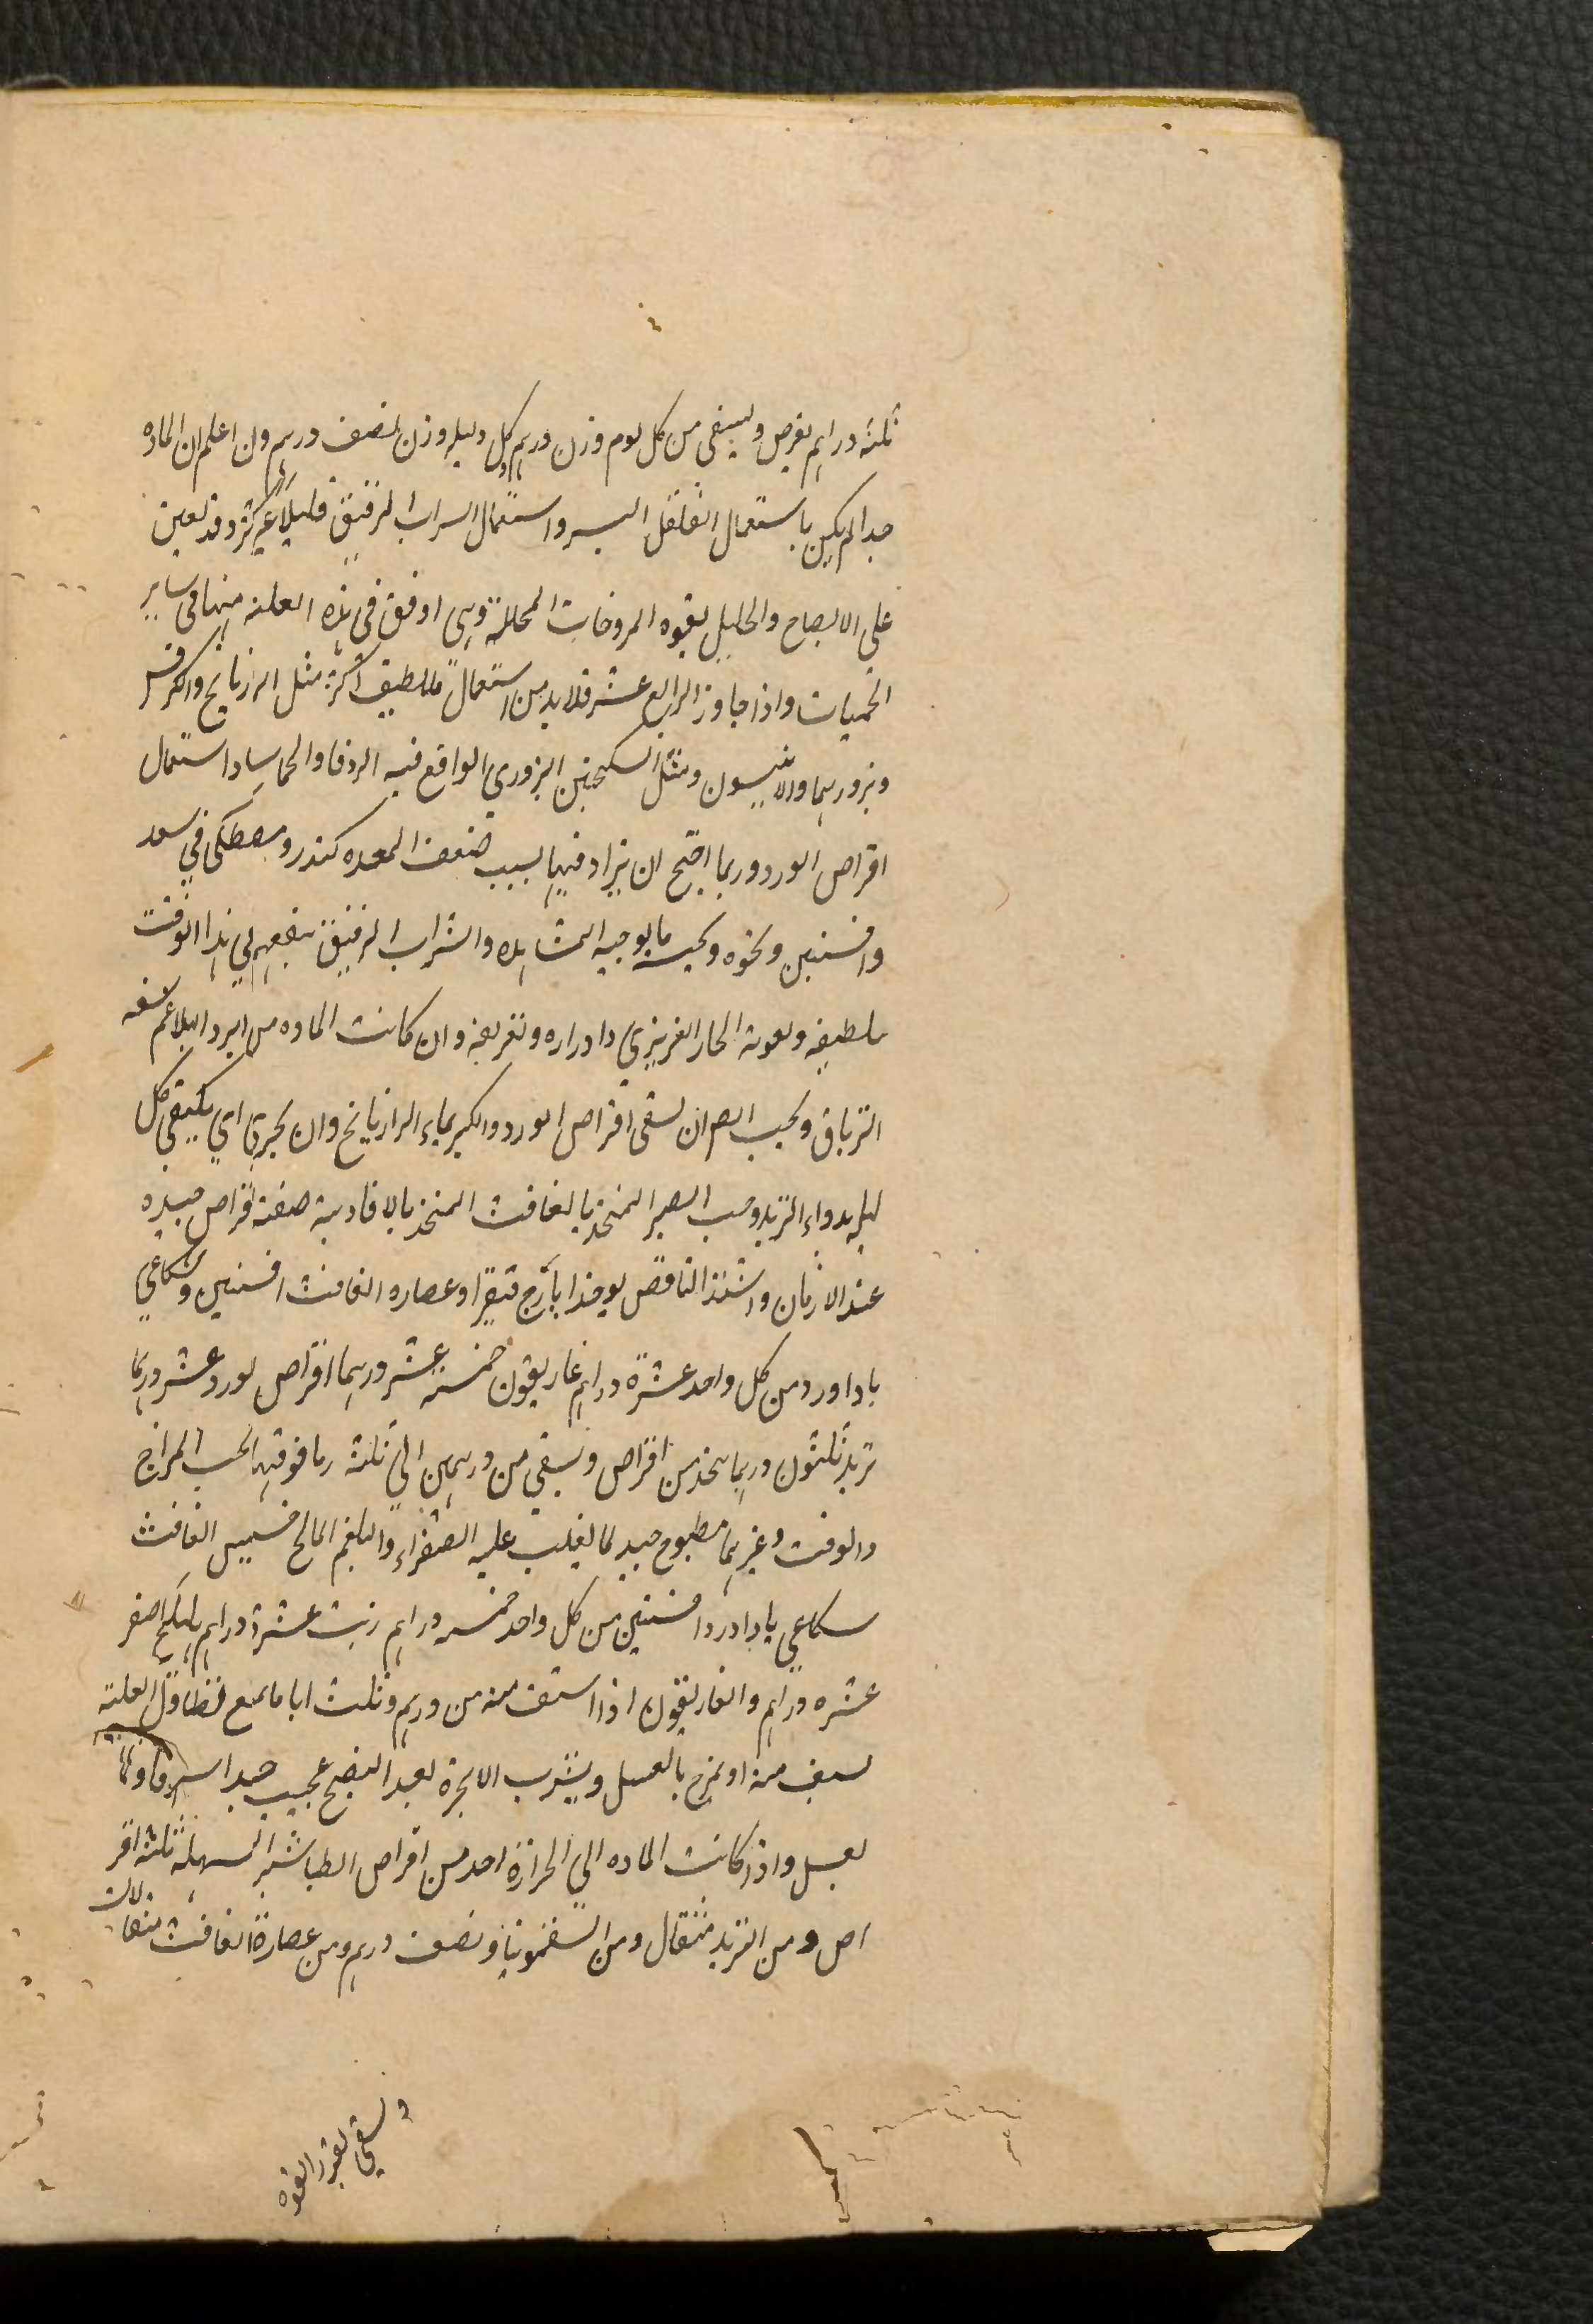 ثلثه دراهم يقرص ويسقى من كل يوم وزن درهم كل وليله وزن نصف درهم وان اعلم ان الماده
جدا لم يكن باستعمال الفلفل اليسير واستعمال الشراب الرقيق قليلا غير كثير وقد يعين
على الانضاج والتحليل بقوه المروخات المحللة وهى اوفق فى هذه العلة منها فى ساير
الحميات واذا جاوز الرابع عشر فلا بد من استعمال ملطيف اكثر مثل الرازيانج والكرفس
وبزورهما والانيسون ومثل السكنجبين البزورى الواقع فيه الزوفا والحاشا واستعمال
اقراص الورد وربما احتيج ان يزاد فيها بسبب ضعف المعده كندر ومصطكى فى سعد
وافسنتين ونحوه وبحسب ما يوجبه المشاهده والشراب الرقيق ينفعهم فى هذا الوقت
بتلطيفه ومعونة الحار الغريزى وادراره وتعريقه وان كانت الماده من ابرد البلاغم سقه
الترياق ويجب ان تسقى اقراص الورد والكبر بماء الرازيانج وان يجرى اى يسقى كل
ليلة بدواء التربد وحب الصبر المتخذ بالغافت المتخذ بالافاويه صفة اقراص جيده
عند الازمان واشتد النافض يوخذ ايارج فيقرا وعصاره الغافت افسنتين وشكاعى
باداورد من كل واحد عشرة دراهم غاريقون خمسة عشر درهما اقراص لورد عشر درهما
تربد ثلثون درهما يتخذ من اقراص ويسقى من درهمين الى ثلثه وما فوقها بحسب المزاج
والوقت وغيرهما مطبوخ جيد لما يغلب عليه الصفراء والبلغم المالح حشيش الغافت
شكاعى باداورد افسنتين من كل واحد خمسه دراهم زبيب عشرة دراهم هليلج اصفر
عشره دراهم والغاريقون اذا استف منه من درهم وثلث اياما منع تطاول العلة
يسف منه او يمزج بالعسل ويشرب الانجرة بعد النضج عجيب جدا سفوفا
بعسل واذا كانت الماده الى الحرارة اخذ من اقراص الطباشير المسهلة ثلثه اقر
اص ومن التربد مثقال ومن السقمونيا ونصف درهم ومن عصارة الغافت مثقالان
ويسقى بقدر القوه